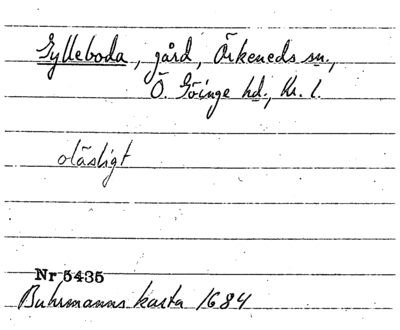 Gylleboda, gård, Örkeneds sn.,
Ö. Göinge hd., Kr. l.
oläsligt
Nr 5435
Buhrmanns karta 1684